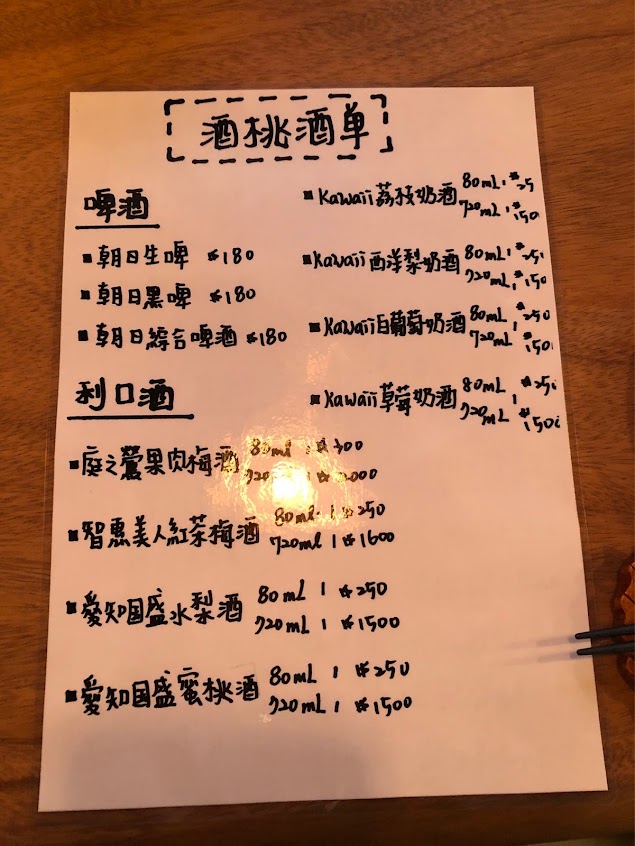 酒桃酒单
啤酒
■朝日生啤 *180
■朝日黑啤 *180
■朝日綜合啤酒 *180
利口酒
■庭之鶯果肉梅酒 80ml / *300
720ml / *2000
■智惠美人紅茶梅酒 80ml / *250
720ml / *1600
■愛知国盛水梨酒 80mL / *250
720mL / *1500
■愛知国盛蜜桃酒 80mL / *250
720mL / *1500
■Kawaii荔枝奶酒 80mL / *25
720mL / *150
■Kawaii西洋梨奶酒 80mL / *25
720mL / *150
■Kawaii白葡萄奶酒 80mL / *250
720mL / *150
■Kawaii草莓奶酒 80mL / *25
720mL / *150